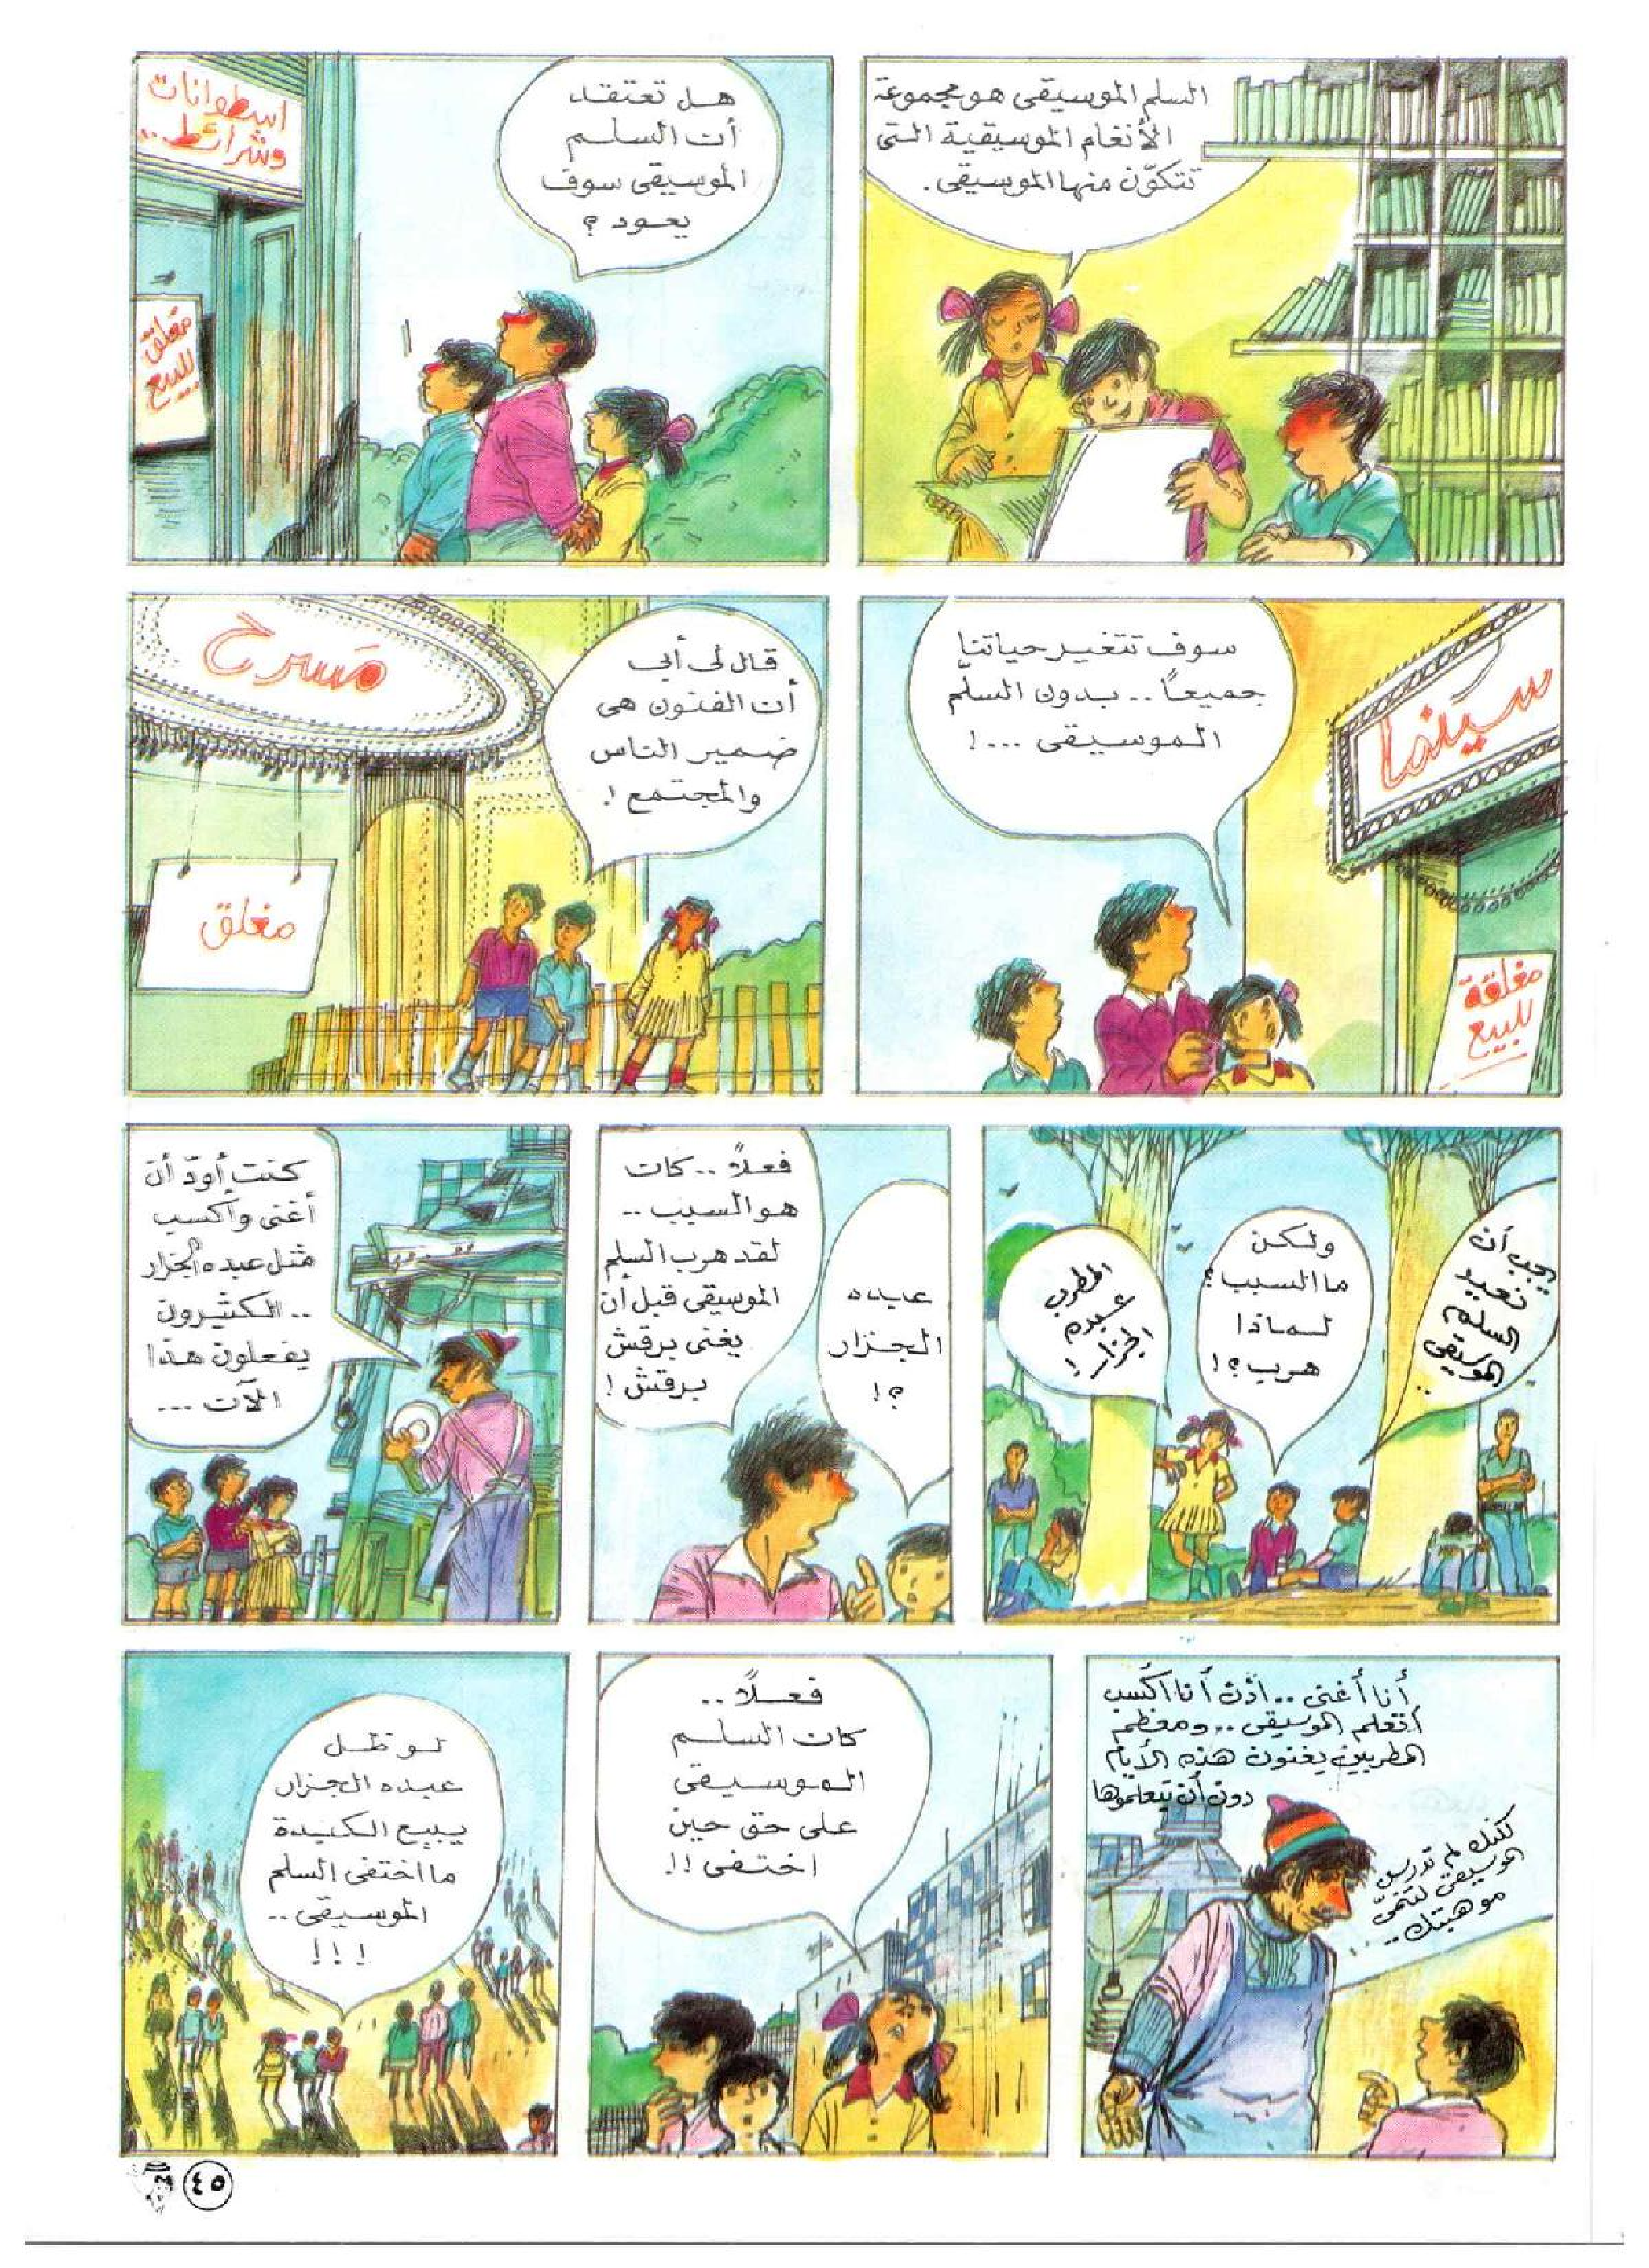 السلم الموسيقى هو مجموعة
الأنغام الموسيقية التى
تتكوّن منها الموسيقى.
هل تعتقد
أن السلم
الموسيقى سوف
يعود ؟
اسطوانات
وشرائط..
مغلق
للبيع
سوف تتغير حياتنا
جميعاً .. بدون السلّم
الموسيقى ...!
سينما
مغلقة
للبيع
قال لى أبى
أن الفنون هى
ضمير الناس
والمجتمع !.
مَسرح
مغلق
يجب أن
نعيد
السلم
الموسيقى
..
ولكن
ما السبب؟
لماذا
هرب؟!
المطرب
عبده
الجزار!
عبده
الجزار
؟!
فعلاً .. كان
هو السبب ..
لقد هرب السلم
الموسيقى قبل أن
يغنى برقش
برقش !
كنت أودّ أن
أغنى وأكسب
مثل عبده الجزار
.. الكثيرون
يفعلون هذا
الآن ...
أنا أغنى .. اذن أنا أكسب
أتعلم الموسيقى .. ومعظم
المطربين يغنون هذه الأيام
دون أن يتعلموها
لكنك لم تدرس
الموسيقى لتنمّى
موهبتك ..
فعلاً ..
كان السلم
الموسيقى
على حق حين
اختفى !!
لو ظل
عبده الجزار
يبيع الكبدة
ما اختفى السلم
الموسيقى ..
!!!
٤٥